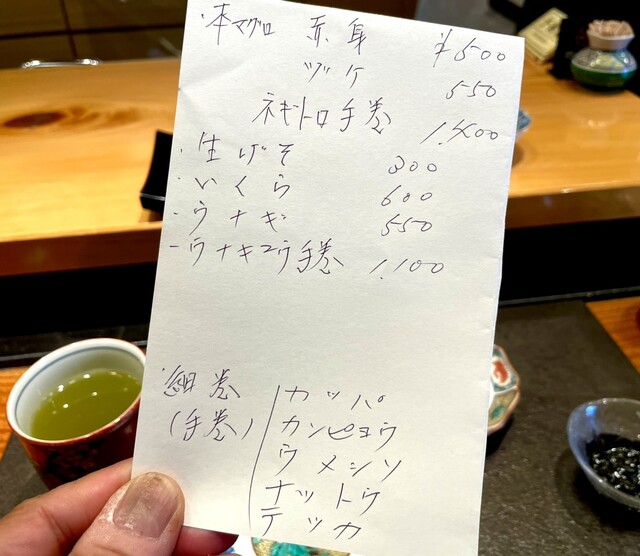 ・本マグロ 赤身 ¥500
ヅケ 550
ネギトロ手巻 1.500
・生げそ 300
・いくら 600
・ウナギ 550
-ウナキュウ手巻 1.100
細巻 カッパ
(手巻) カンピョウ
ウメシソ
ナットウ
テッカ